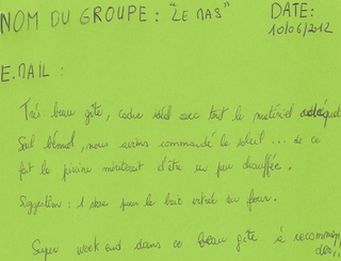 NOM DU GROUPE : "LE MAS" DATE:
10/06/2012
E.MAIL :
Très beau gîte, cadre idéal avec tout le matériel adéquat
Seul bémol, nous avions commandé le soleil ... de ce
fait la piscine mériterait d'être un peu chauffée.
Suggestion : 1 store pour la baie vitrée du four.
Super week end dans ce beau gîte à recomman
der,,